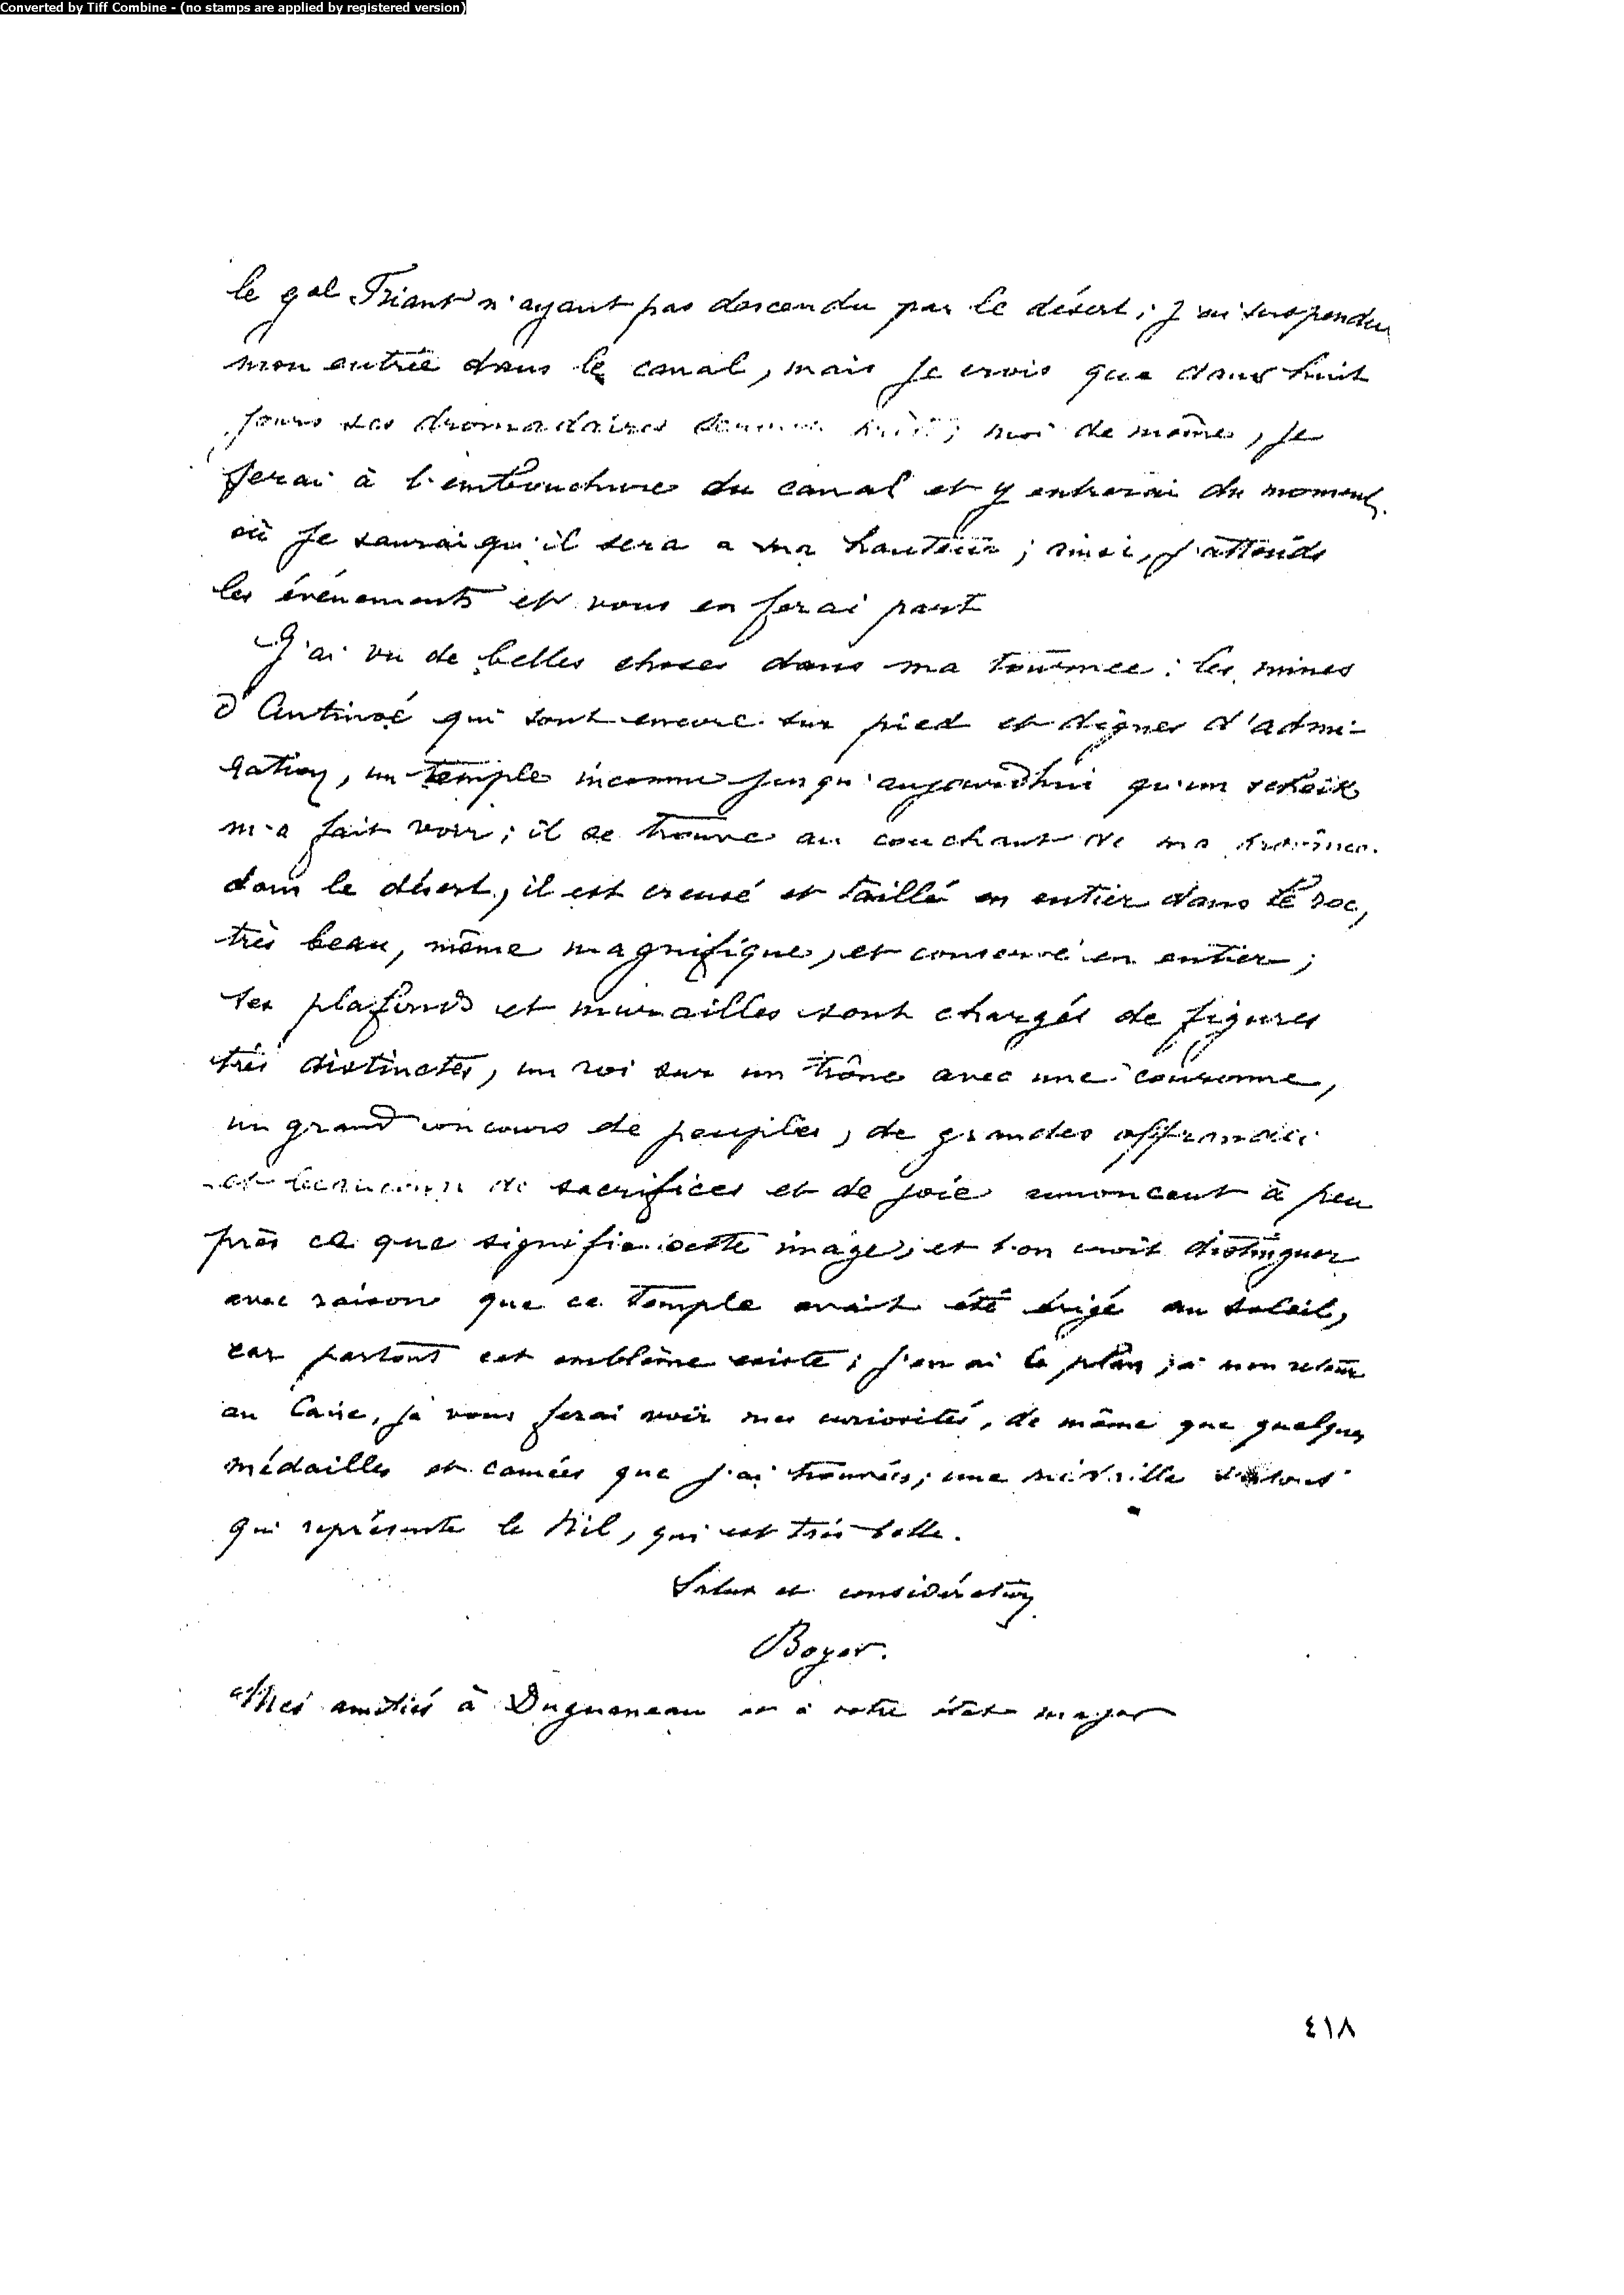 Converted by Tiff Combine - (no stamps are applied by registered version)
le gal Friant n'ayant pas descendu par le désert; j'ai suspendu
mon entrée dans le canal, mais je crois que dans huit
jours ses dromadaires moi de même, je
serai à l'embouchure du canal et y entrerai du moment
où je saurai qu'il sera a ma hauteur; ainsi, j'attends
les événements et vous en ferai part
J'ai vu de belles choses dans ma tournée: les ruines
d'Antinoé qui sont encore sur pied et dignes d'admi-
ration, un temple inconnu jusqu'aujourd'hui qu'un scheik
m'a fait voir; il se trouve au couchant de ma province
dans le désert, il est creusé et taillé en entier dans le roc,
très beau, même magnifique, et conservé en entier;
ses plafonds et murailles sont chargés de figures
très distinctes, un roi sur un trône avec une couronne,
un grand concours de peuples, de grandes offrandes
et beaucoup de sacrifices et de joie annoncent à peu
près ce que signifie cette image, et l'on croit distinguer
avec raison que ce temple avait été érigé au soleil,
car partout cet emblème existe; j'en ai le plan, à mon retour
au Caire, je vous ferai voir mes curiosités, de même que quelques
médailles et camées que j'ai trouvés; une médaille surtout
qui représente le Nil, qui est très belle.
Salut et considération
Boyer.
Mes amitiés à Duguaneau et à votre état major
٤١٨